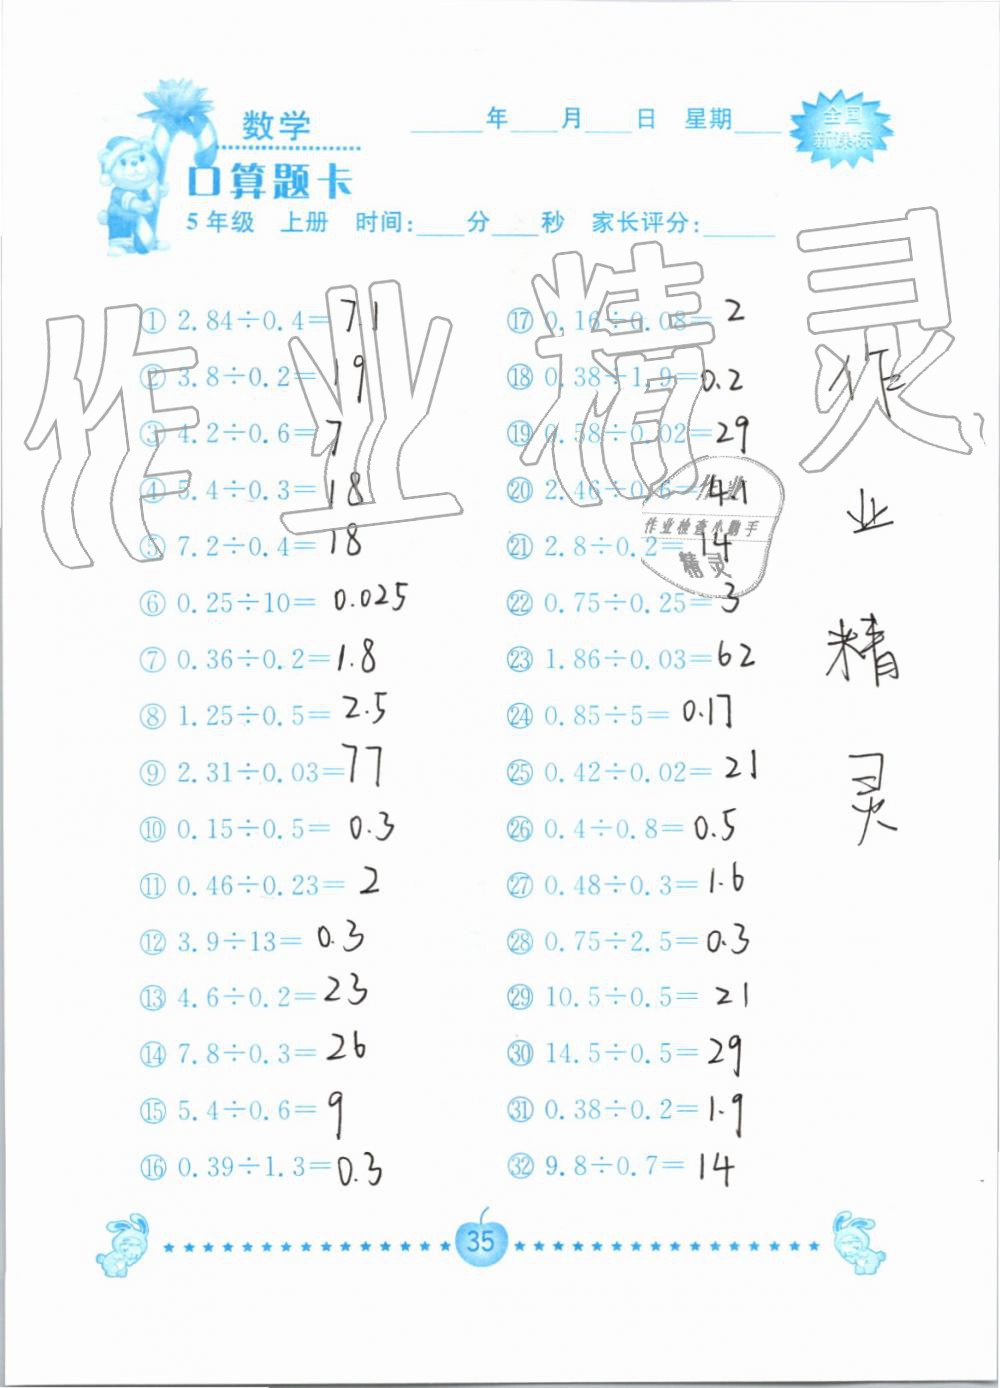 数学
____年____月____日 星期____
全国
新课标
口算题卡
5年级 上册 时间:____分____秒 家长评分:____
作业精灵
① 2.84÷0.4=7.1
② 3.8÷0.2=19
③ 4.2÷0.6=7
④ 5.4÷0.3=18
⑤ 7.2÷0.4=18
⑥ 0.25÷10=0.025
⑦ 0.36÷0.2=1.8
⑧ 1.25÷0.5=2.5
⑨ 2.31÷0.03=77
⑩ 0.15÷0.5=0.3
⑪ 0.46÷0.23=2
⑫ 3.9÷13=0.3
⑬ 4.6÷0.2=23
⑭ 7.8÷0.3=26
⑮ 5.4÷0.6=9
⑯ 0.39÷1.3=0.3
⑰ 0.16÷0.08=2
⑱ 0.38÷1.9=0.2
⑲ 0.58÷0.02=29
⑳ 2.46÷0.6=4.1
㉑ 2.8÷0.2=14
㉒ 0.75÷0.25=3
㉓ 1.86÷0.03=62
㉔ 0.85÷5=0.17
㉕ 0.42÷0.02=21
㉖ 0.4÷0.8=0.5
㉗ 0.48÷0.3=1.6
㉘ 0.75÷2.5=0.3
㉙ 10.5÷0.5=21
㉚ 14.5÷0.5=29
㉛ 0.38÷0.2=1.9
㉜ 9.8÷0.7=14
作业
作业检查小助手
精灵
作
业
精
灵
35